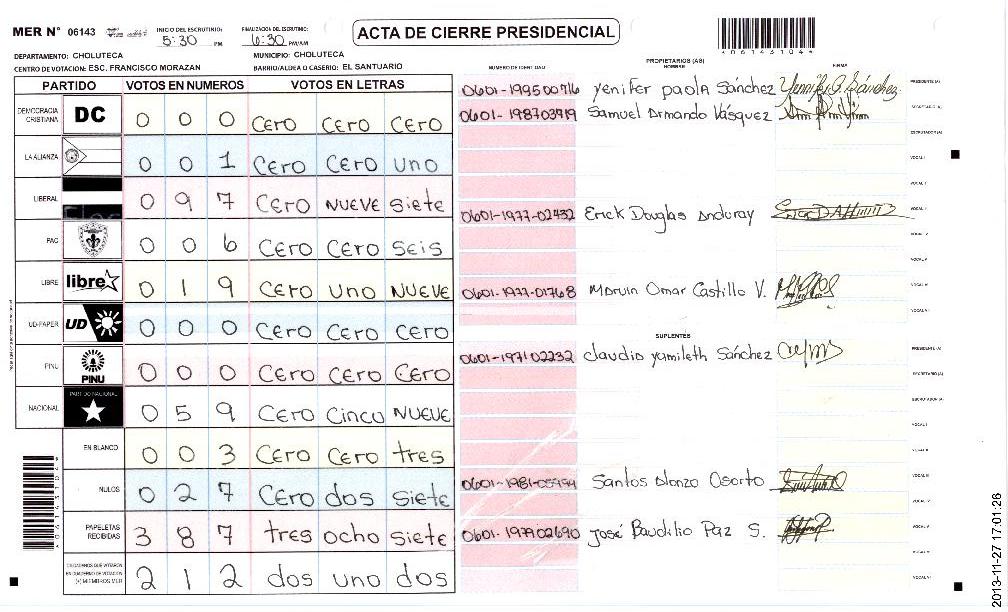 MER N° 06143 INICIO DEL ESCRUTINIO: 5:30 PM FINALIZACION DEL ESCRUTINIO: 6:30 PM/AM
ACTA DE CIERRE PRESIDENCIAL
4061431044
DEPARTAMENTO: CHOLUTECA MUNICIPIO: CHOLUTECA
CENTRO DE VOTACION: ESC. FRANCISCO MORAZAN BARRIO/ALDEA O CASERIO: EL SANTUARIO
PARTIDO VOTOS EN NUMEROS VOTOS EN LETRAS
DEMOCRACIA CRISTIANA DC 0 0 0 Cero Cero Cero
LA ALIANZA 0 0 1 Cero Cero uno
LIBERAL 0 9 7 Cero NUEVE Siete
PAC 0 0 6 Cero Cero Seis
LIBRE libre 0 1 9 Cero uno NUEVE
UD-FAPER UD 0 0 0 Cero Cero Cero
PINU PINU 0 0 0 Cero Cero Cero
NACIONAL PARTIDO NACIONAL 0 5 9 Cero Cinco NUEVE
EN BLANCO 0 0 3 Cero Cero tres
NULOS 0 2 7 Cero dos Siete
PAPELETAS RECIBIDAS 3 8 7 tres ocho siete
CIUDADANOS QUE VOTARON EN CUADERNO DE VOTACION (+) MIEMBROS MER 2 1 2 dos uno dos
NUMERO DE IDENTIDAD PROPIETARIOS (AS) NOMBRE FIRMA
Yenifer paola Sánchez PRESIDENTE (A)
Samuel Armando Vásquez SECRETARIO (A)
ESCRUTADOR (A)
VOCAL I
0601-1977-02432 Erick Douglas
0601-1977-01768 Marvin Omar Castillo V.
SUPLENTES
0601-197102232 Claudia Yamileth Sánchez PRESIDENTE (A)
SECRETARIO (A)
ESCRUTADOR (A)
Santos Alonzo Osorto
0601-197902690 José Baudilio Paz S.
2013-11-27 17:01:26